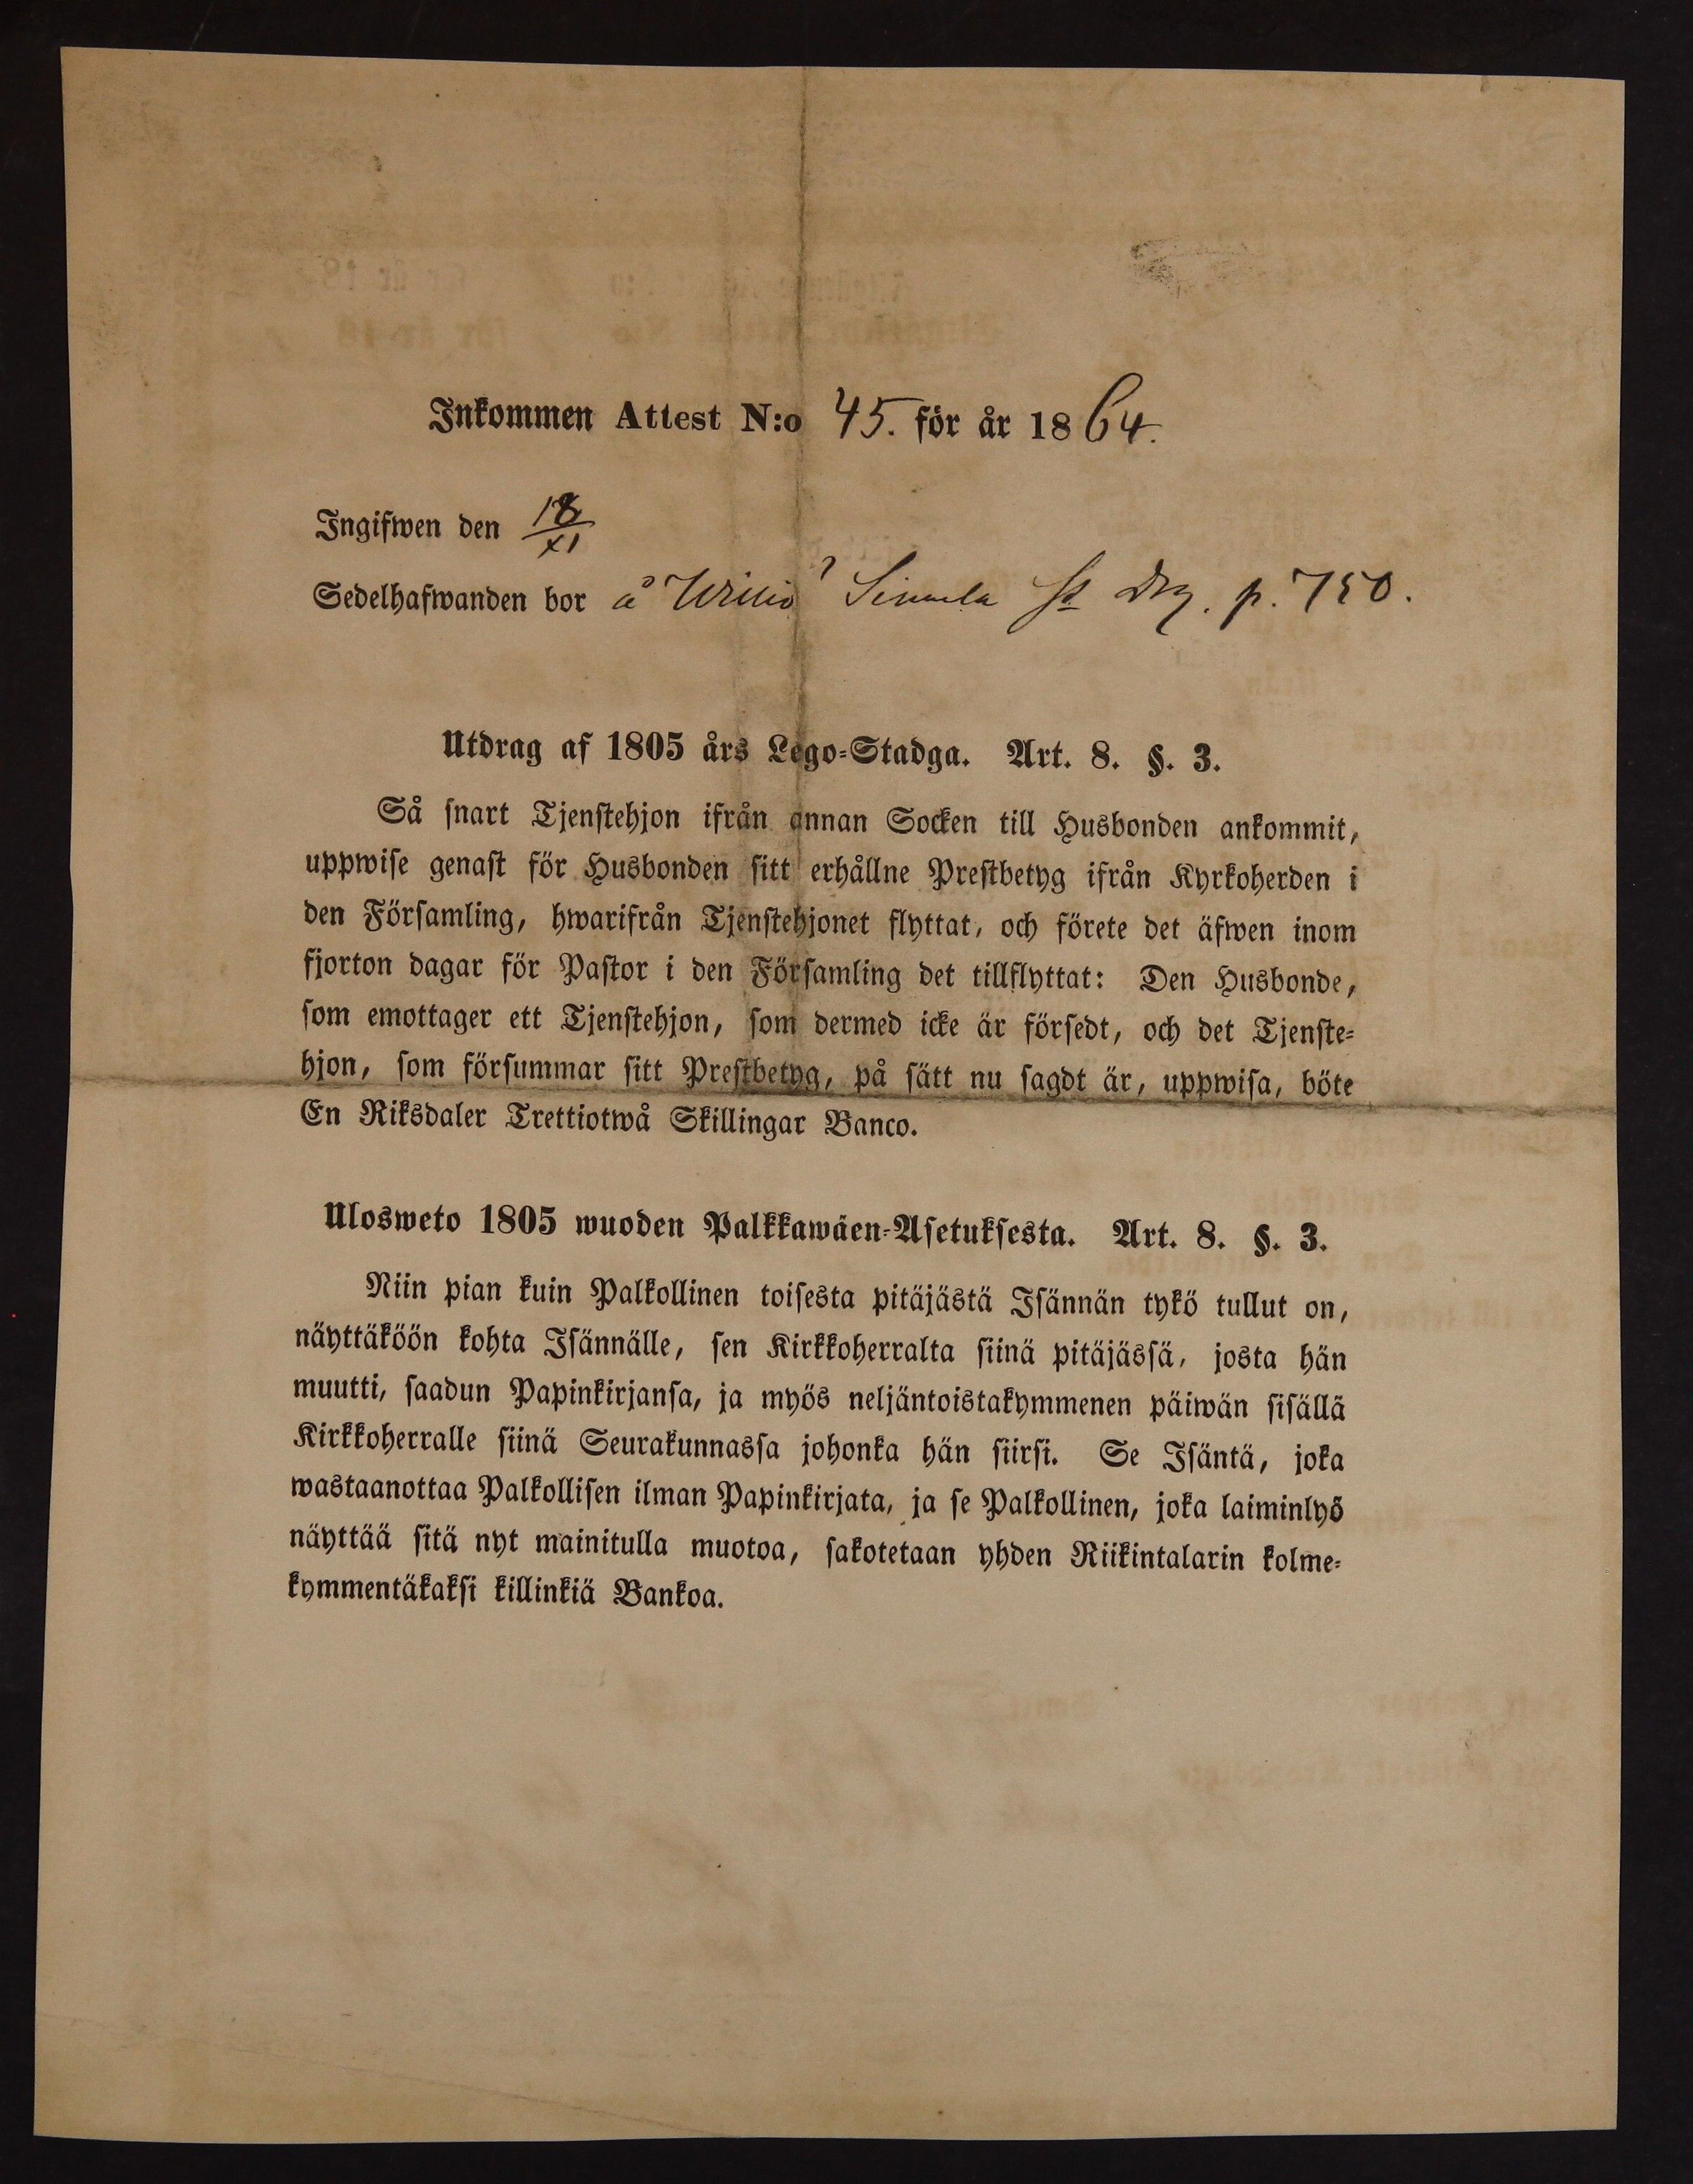 Inkommen Attest N:o 45. för år 1864.
Ingifwen den 18/XI
Sedelhafwanden bor å Simula p. 750.
Utdrag af 1805 års Lego-Stadga. Art. 8. §. 3.
Så snart Tjenstehjon ifrån annan Socken till Husbonden ankommit,
uppwise genast för Husbonden sitt erhållne Prestbetyg ifrån Kyrkoherden i
den Församling, hwarifrån Tjenstehjonet flyttat, och förete det äfwen inom
fjorton dagar för Pastor i den Församling det tillflyttat: Den Husbonde,
som emottager ett Tjenstehjon, som dermed icke är försedt, och det Tjenste-
hjon, som försummar sitt Prestbetyg, på sätt nu sagdt är, uppwisa, böte
En Riksdaler Trettiotwå Skillingar Banco.
Ulosweto 1805 wuoden Palkkawäen-Asetuksesta. Art. 8. §. 3.
Niin pian kuin Palkollinen toisesta pitäjästä Isännän tykö tullut on,
näyttäköön kohta Isännälle, sen Kirkkoherralta siinä pitäjässä, josta hän
muutti, saadun Papinkirjansa, ja myös neljäntoistakymmenen päiwän sisällä
Kirkkoherralle siinä Seurakunnassa johonka hän siirsi. Se Isäntä, joka
wastaanottaa Palkollisen ilman Papinkirjata, ja se Palkollinen, joka laiminlyö
näyttää sitä nyt mainitulla muotoa, sakotetaan yhden Riikintalarin kolme-
kymmentäkaksi killinkiä Bankoa.